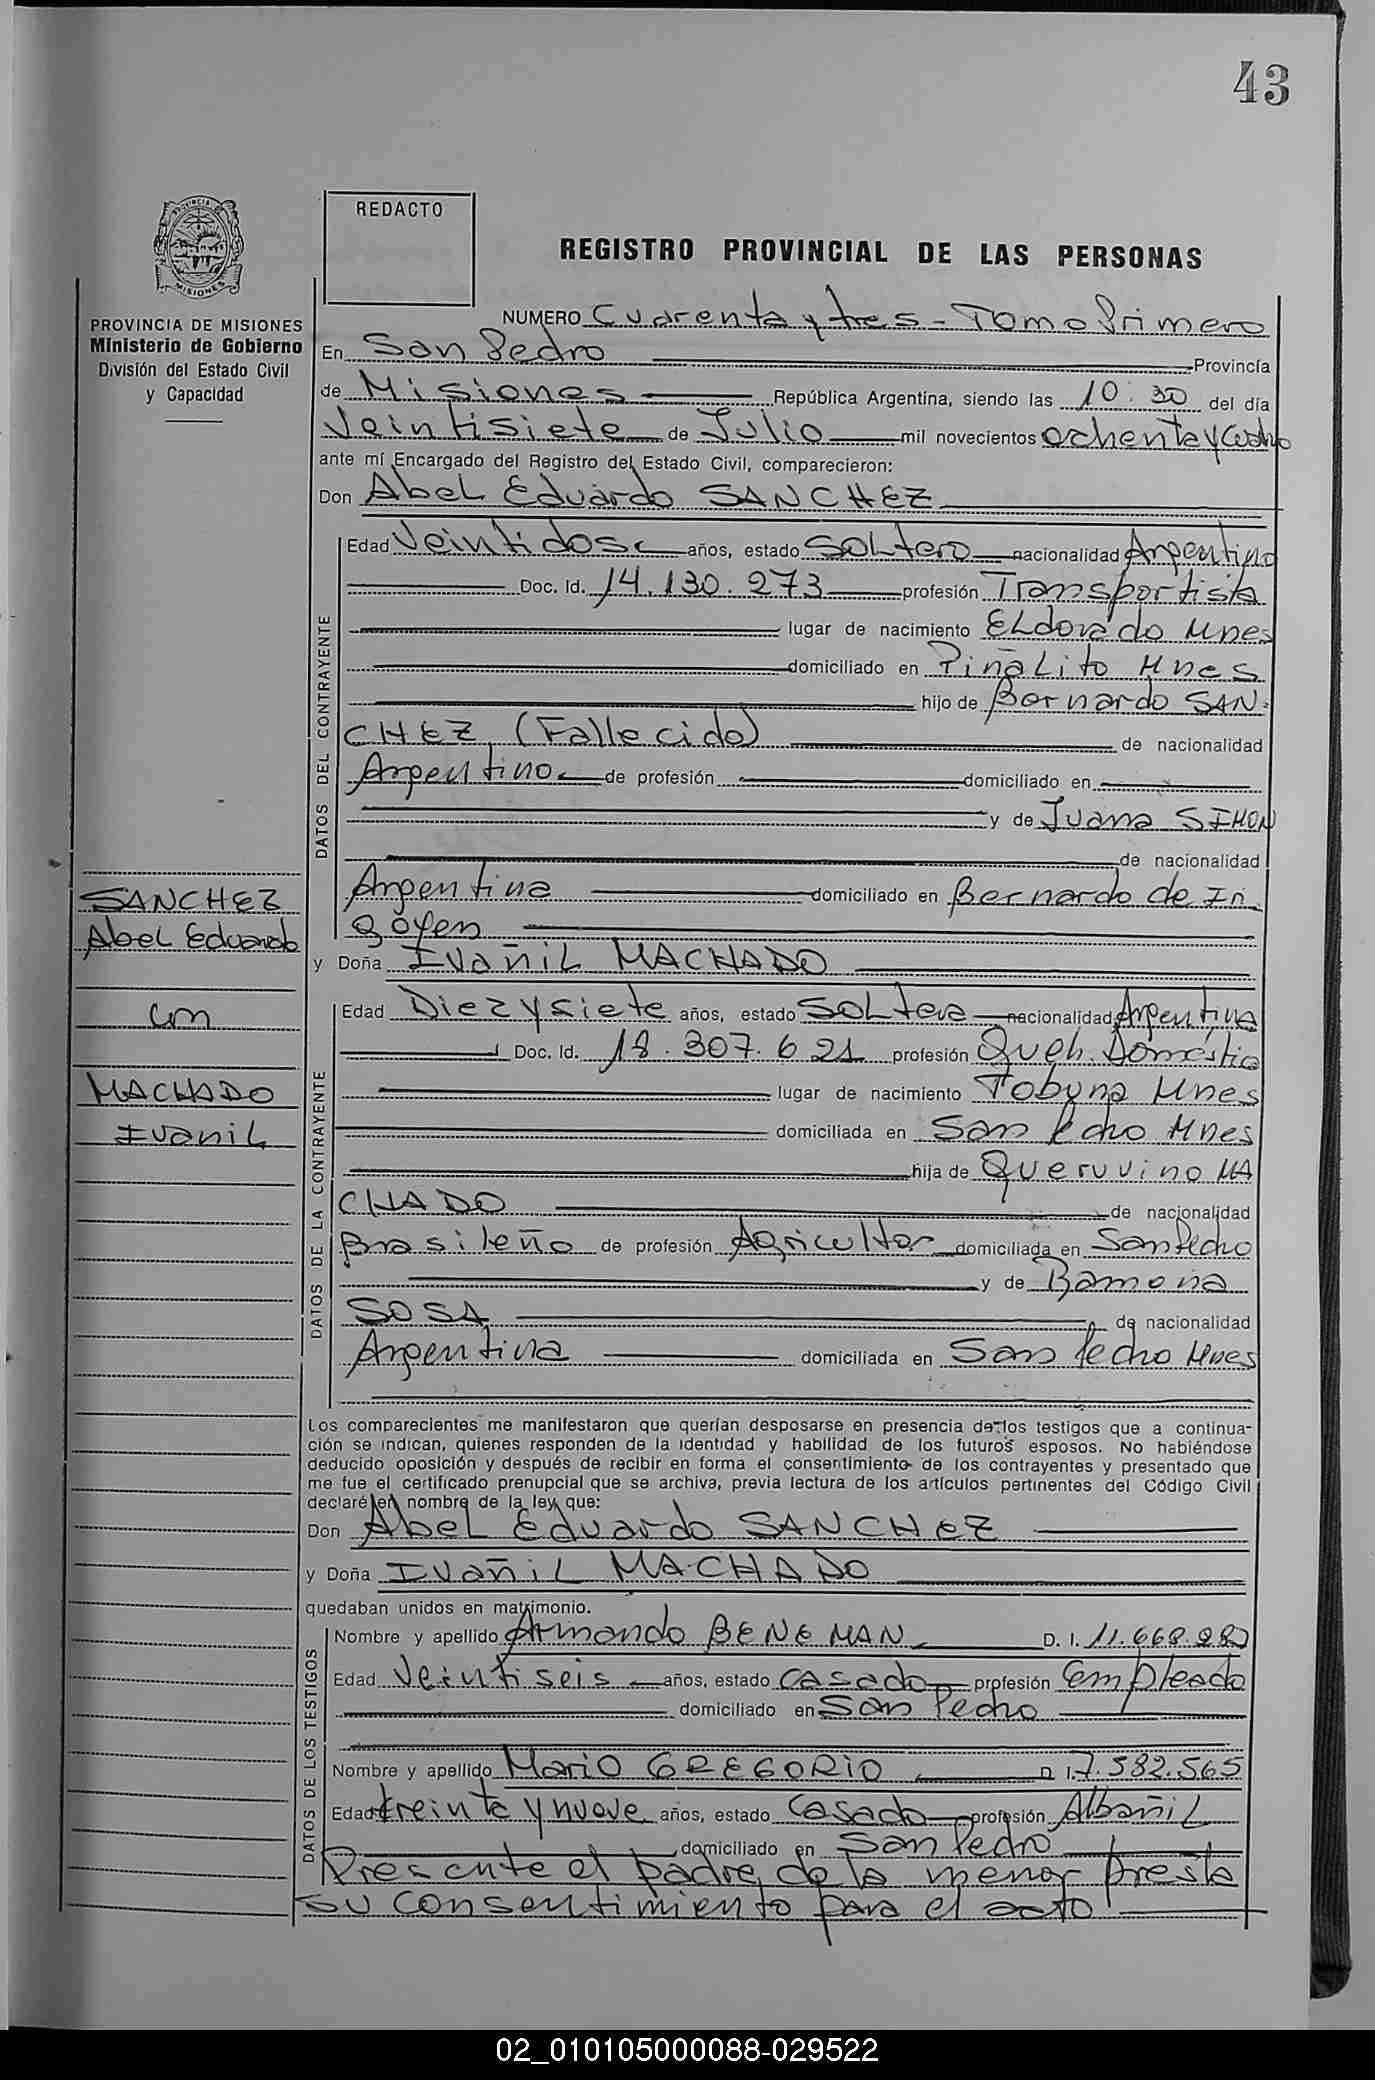 43
REDACTO
REGISTRO PROVINCIAL DE LAS PERSONAS
PROVINCIA DE MISIONES
Ministerio de Gobierno
División del Estado Civil
y Capacidad
NUMERO Cuarenta y tres - Tomo Primero
En San Pedro Provincia
de Misiones República Argentina, siendo las 10:30 del día
Veintisiete de Julio mil novecientos ochenta y cuatro
ante mí Encargado del Registro del Estado Civil, comparecieron:
Don Abel Eduardo SANCHEZ
DATOS DEL CONTRAYENTE
Edad Veintidos años, estado SOLtero nacionalidad Argentino
Doc. Id. 14.130.273 profesión Transportista
lugar de nacimiento ELdorado Mnes
domiciliado en PiñaLito Mnes
hijo de Bernardo SAN-
CHEZ (Fallecido) de nacionalidad
Argentino de profesión domiciliado en
y de Juana SIMON
de nacionalidad
Argentina domiciliado en Bernardo de Iri
goyen
SANCHEZ
Abel Eduardo
con
MACHADO
IvaniL
y Doña IvañiL MACHADO
DATOS DE LA CONTRAYENTE
Edad Diez y siete años, estado SOLtera nacionalidad Argentina
Doc. Id. 18.307.621 profesión Queh. Doméstic
lugar de nacimiento Tobuna Mnes
domiciliada en San Pedro Mnes
hija de Queruvino MA
CHADO de nacionalidad
Brasileño de profesión Agricultor domiciliada en San Pedro
y de Ramona
SOSA de nacionalidad
Argentina domiciliada en San Pedro Mnes
Los comparecientes me manifestaron que querían desposarse en presencia de los testigos que a continua-
ción se indican, quienes responden de la identidad y habilidad de los futuros esposos. No habiéndose
deducido oposición y después de recibir en forma el consentimiento de los contrayentes y presentado que
me fue el certificado prenupcial que se archiva, previa lectura de los artículos pertinentes del Código Civil
declaré en nombre de la ley que:
Don Abel Eduardo SANCHEZ
y Doña IvañiL MACHADO
quedaban unidos en matrimonio.
DATOS DE LOS TESTIGOS
Nombre y apellido Armando BENEMAN D. I. 11.668.
Edad Veintiseis años, estado casado profesión Empleado
domiciliado en San Pedro
Nombre y apellido Mario GREGORIO D I. 7.582.565
Edad treinta y nueve años, estado Casado profesión AlbañiL
domiciliado en San Pedro
Presente el padre de la menor presta
su consentimiento para el acto
02_010105000088-029522